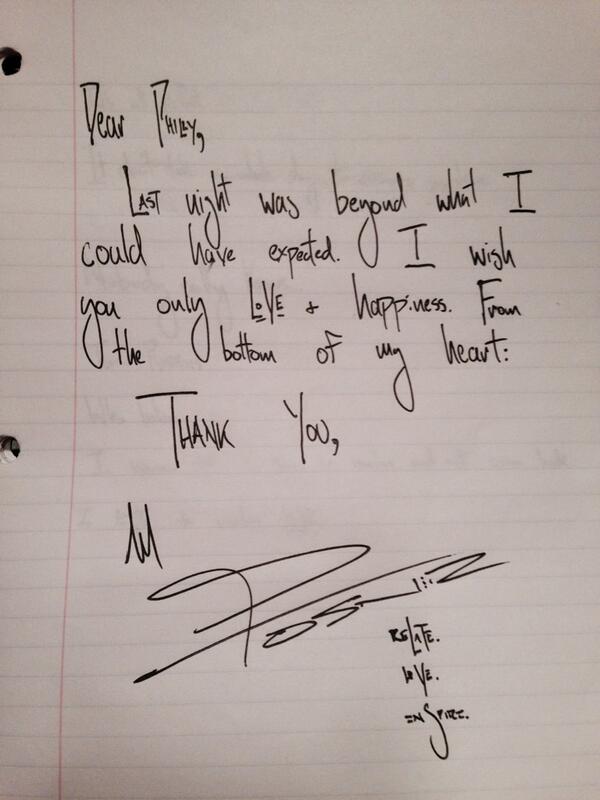 Dear PHILEY,
LAST night was beyond what I
could have expected. I wish
you only LOVE + happiness. From
the bottom of my heart:
THANK YOU,
RELATE.
LOVE.
ENSPIRE.